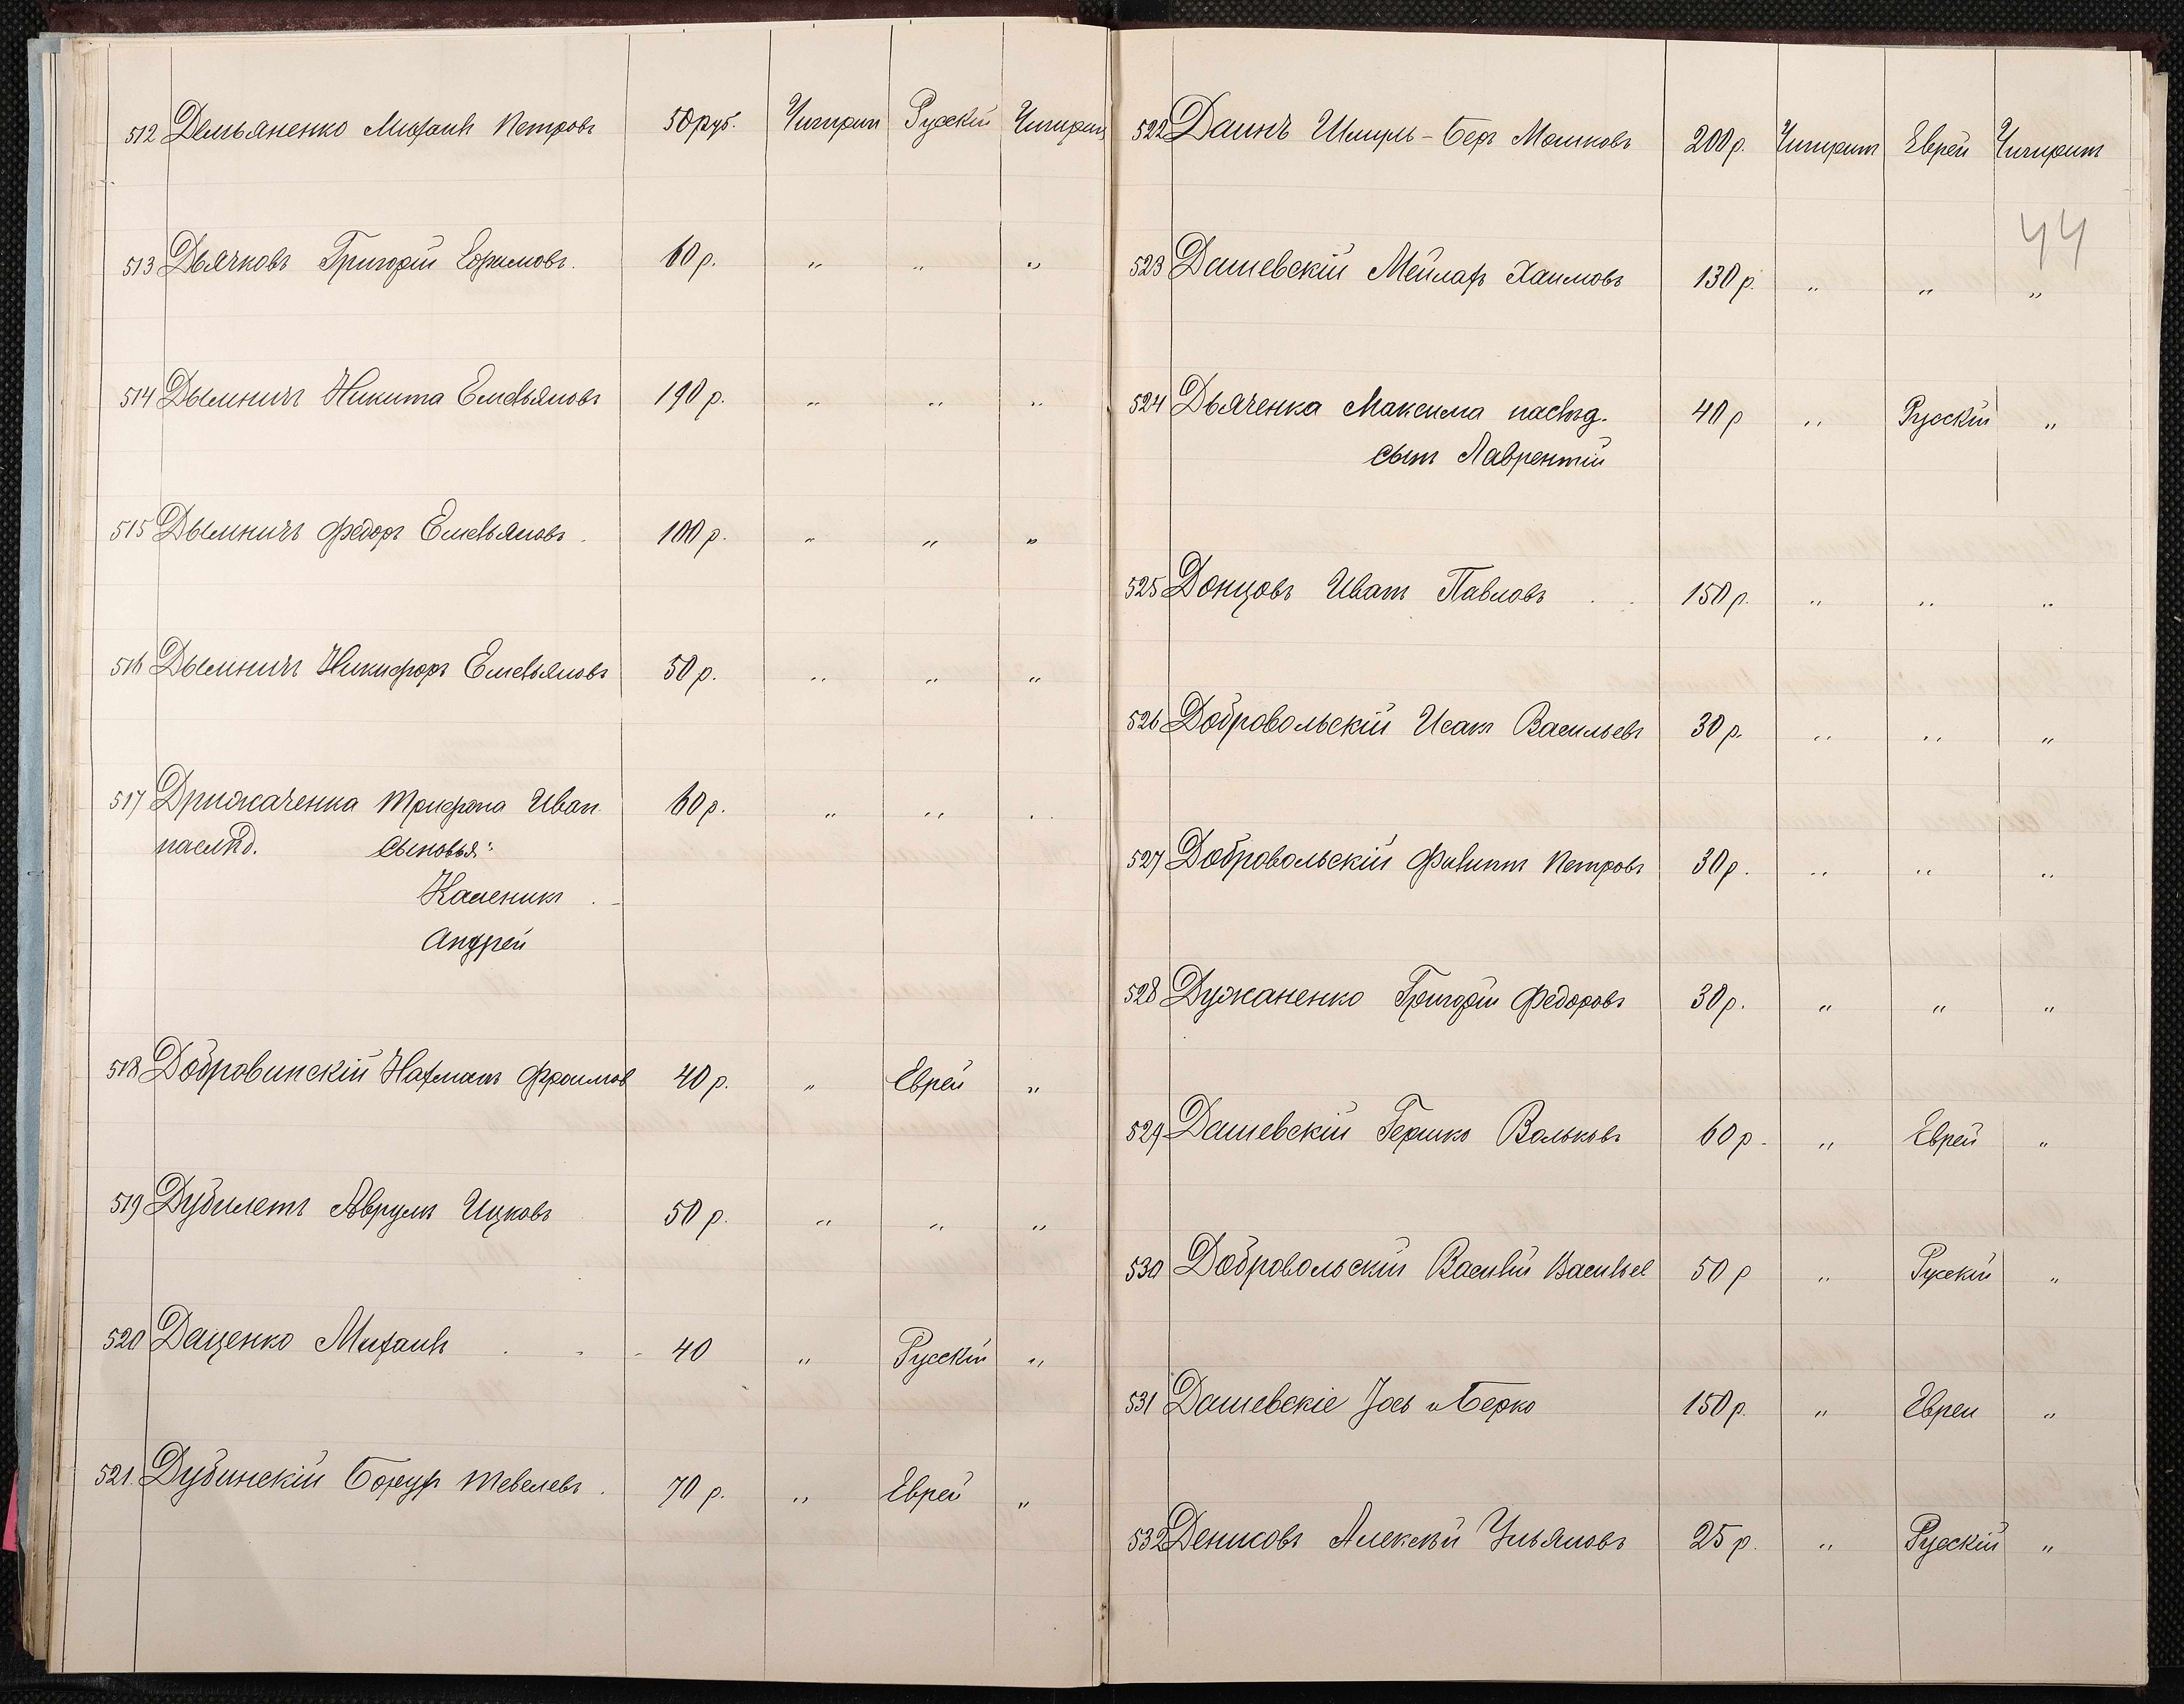 512 Демьяненко Михаилъ Петровъ 50 руб. Чигирин Русскій Чигирин
513 Дьячковъ Григорій Ефимовъ. 60 р. " " "
514 Дымничъ Никита Емельяновъ 190 р. " " "
515 Дымничъ Федоръ Емельяновъ. 100 р. " " "
516 Дымничъ Никифоръ Емельяновъ 50 р. " " "
517 Дрижаченка Трифона Иван. 60 р. " " "
наслѣд. сыновья:
Каленикъ
Андрей
518 Добровинскій Нахманъ Фроимов 40 р. " Еврей "
519 Дубилетъ Аврумъ Ицковъ 50 р. " " "
520 Даценко Михаилъ 40 " Русскій "
521. Дубинскій Борухъ Тевелевъ. 70 р. " Еврей "
522 Даинъ Шмуль-Беръ Мошковъ 200 р. Чигирин Еврей Чигирин
44
523 Дашевскій Мейлахъ Хаимовъ 130 р. " " "
524 Дьяченка Максима наслѣд. 40 р " Русскій "
сынъ Лаврентій
525 Донцовъ Иванъ Павловъ 150 р. " " "
526 Добровольскій Исакъ Васильевъ 30 р. " " "
527 Добровольскій Филиппъ Петровъ 30 р. " " "
528 Дужаненко Григорій Федоровъ 30 р. " " "
529 Дашевскій Гершко Вольковъ 60 р. " Еврей "
530 Добровольскій Василій Васильев 50 р " Русскій "
531 Дашевскіе Іось и Берко 150 р. " Евреи "
532 Денисовъ Алексѣй Ульяновъ 25 р. " Русскій "